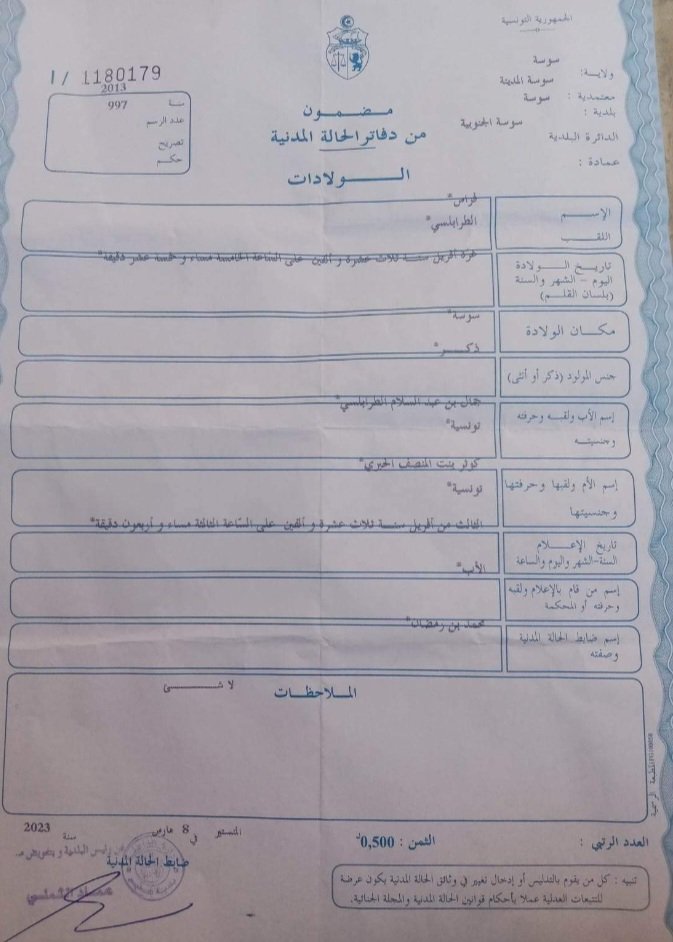 الجمهورية التونسية
ولاية: سوسة
معتمدية : سوسة المدينة
بلدية : سوسة
الدائرة البلدية سوسة الجنوبية
عمادة :
I/ 1180179
سنة 2013
عدد الرسم 997
تصريح
حكم
مضمون
من دفاتر الحالة المدنية
الولادات
الإسم فراس*
اللقب الطرابلسي*
تاريخ الولادة
اليوم - الشهر والسنة
(بلسان القلم)
غرة أفريل سنة ثلاث عشرة و ألفين على الساعة الخامسة مساء و خمسة عشر دقيقة*
مكان الولادة سوسة*
جنس المولود (ذكر أو أنثى) ذكر*
إسم الأب ولقبه وحرفته
وجنسيته
جمال بن عبد السلام الطرابلسي*
تونسية*
إسم الأم ولقبها وحرفتها
وجنسيتها
كوثر بنت المنصف الحيزي*
تونسية*
تاريخ الإعلام
السنة-الشهر واليوم والساعة
الثالث من أفريل سنة ثلاث عشرة و ألفين على الساعة الثالثة مساء و أربعون دقيقة*
إسم من قام بالإعلام ولقبه
وحرفته أو المحكمة
الأب*
إسم ضابط الحالة المدنية
وصفته
محمد بن رمضان*
الملاحظات
لا شئ
المطبعة الرسمية
العدد الرتبي :
الثمن : 0,500د
المنستير في 8 مارس سنة 2023
عن رئيس البلدية و بتفويض منه
ضابط الحالة المدنية
تنبيه : كل من يقوم بالتدليس أو إدخال تغيير في وثائق الحالة المدنية يكون عرضة
للتتبعات العدلية عملا بأحكام قوانين الحالة المدنية والمجلة الجنائية.